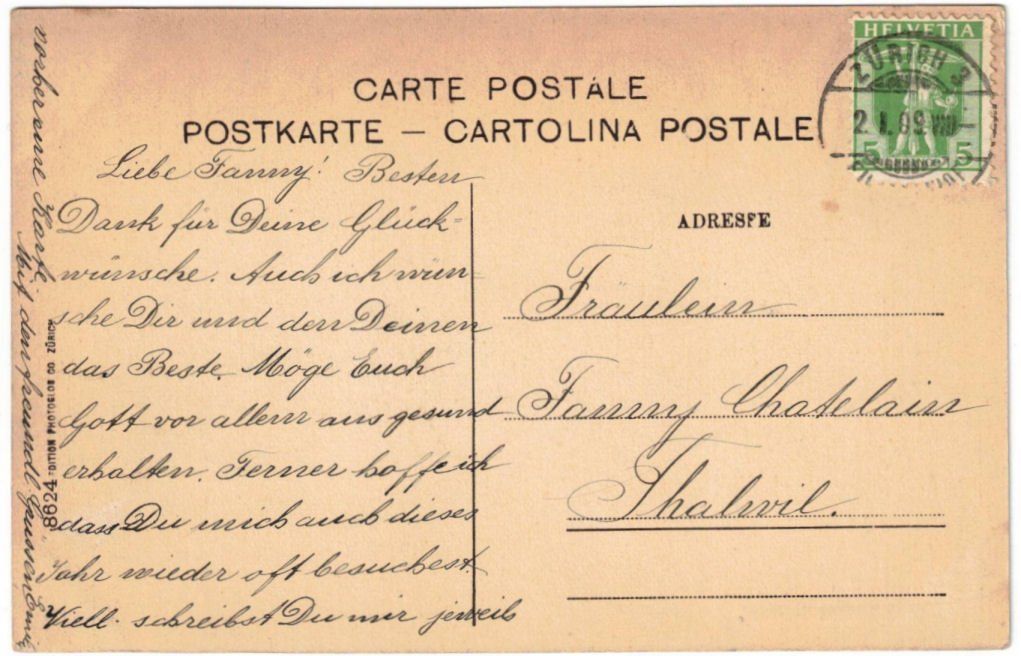 CARTE POSTALE
POSTKARTE — CARTOLINA POSTALE
HELVETIA
5 5
ZÜRICH 3
2.I.09.VIII—
ADRESSE
Fräulein
Fanny Chatelain
Thalwil.
Liebe Fanny! Besten
Dank für Deine Glück-
wünsche. Auch ich wün-
sche Dir und den Deinen
das Beste. Möge Euch
Gott vor allem aus gesund
erhalten. Ferner hoffe ich
dass Du mich auch dieses
Jahr wieder oft besuchest.
Viell. schreibst Du mir jeweils
vorher eine Karte.
Mit den freundl. Grüssen Emil
8624 EDITION PHOTOGLOB CO. ZÜRICH